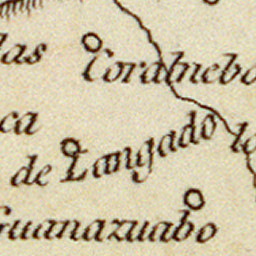 las
Coralnebo
ca
de Langado
lo
Guanazuabo